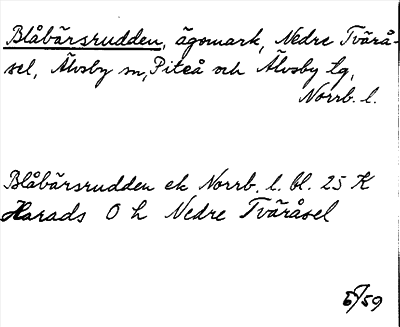 Blåbärsrudden, ägomark, Nedre Tvärå-
sel, Älvsby sn, Piteå och Älvsby tg,
Norrb. l.
Blåbärsrudden ek Norrb. l. bl. 25 K
Harads O h Nedre Tväråsel
5/59